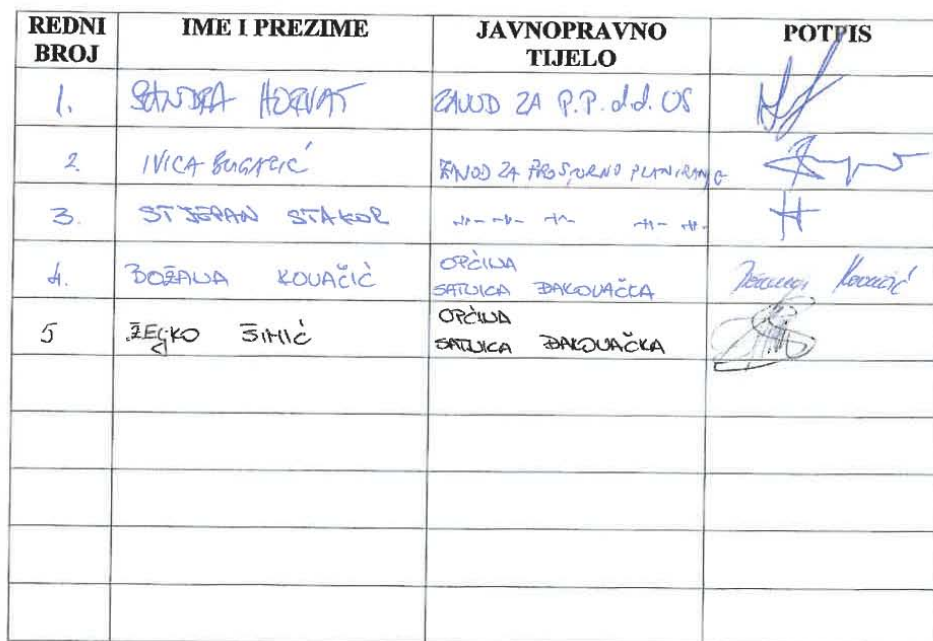 REDNI BROJ IME I PREZIME JAVNOPRAVNO TIJELO POTPIS
1. SANDRA HORVAT ZAVOD ZA P.P. d.d. OS
2. IVICA BUGARIĆ ZAVOD ZA PROSTORNO PLANIRANJE
3. STJEPAN STAKOR -||- -||- -||- -||- -||-
4. BOŽANA KOVAČIĆ OPĆINA SATNICA ĐAKOVAČKA Božana Kovačić
5 ŽELJKO ŠIMIĆ OPĆINA SATNICA ĐAKOVAČKA